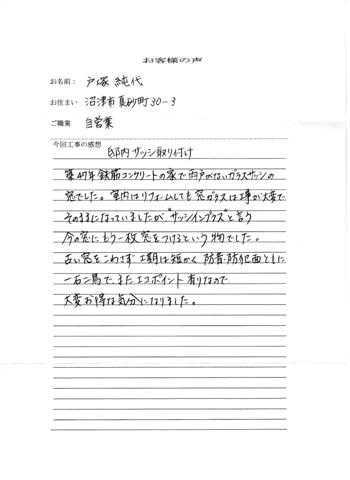 お客様の声
お名前： 戸塚 純代
お住まい 沼津市真砂町30-3
ご職業 自営業
今回工事の感想
邸内サッシ取り付け
築47年鉄筋コンクリートの家で雨戸がないガラスサッシの
窓でした。室内はリフォームしても窓ガラスは工事が大変で
そのままになっていましたが"サッシインプラス"と言う
今の窓にもう一枚窓をつけるという物でした。
古い窓をこわさず工期は短かく 防音.防犯面ともに
一石二鳥で、またエコポイント有りなので
大変お得な気分になりました。